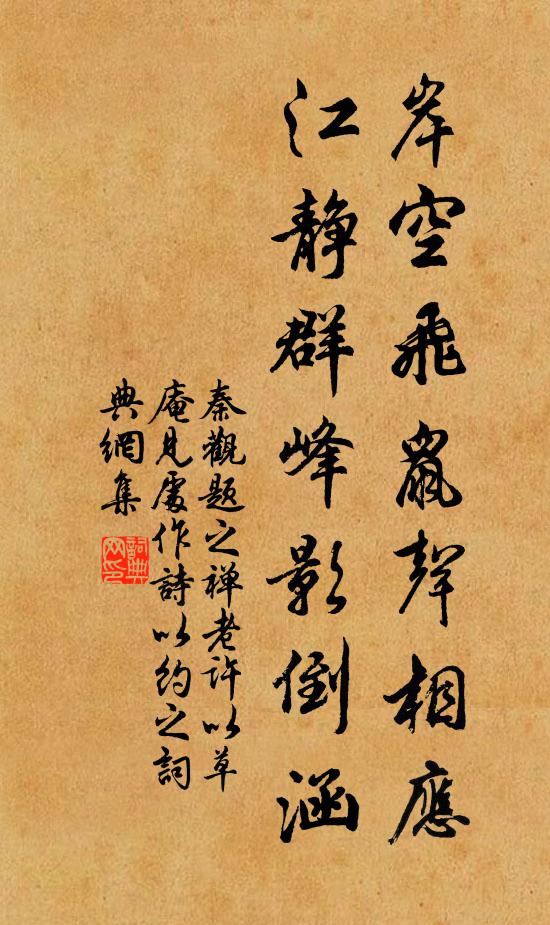 岸空飛鼠聲相應
江靜群峰影倒涵
秦觀題之禅老許以草
庵見處作詩以約之詞
典網集
詞典網印